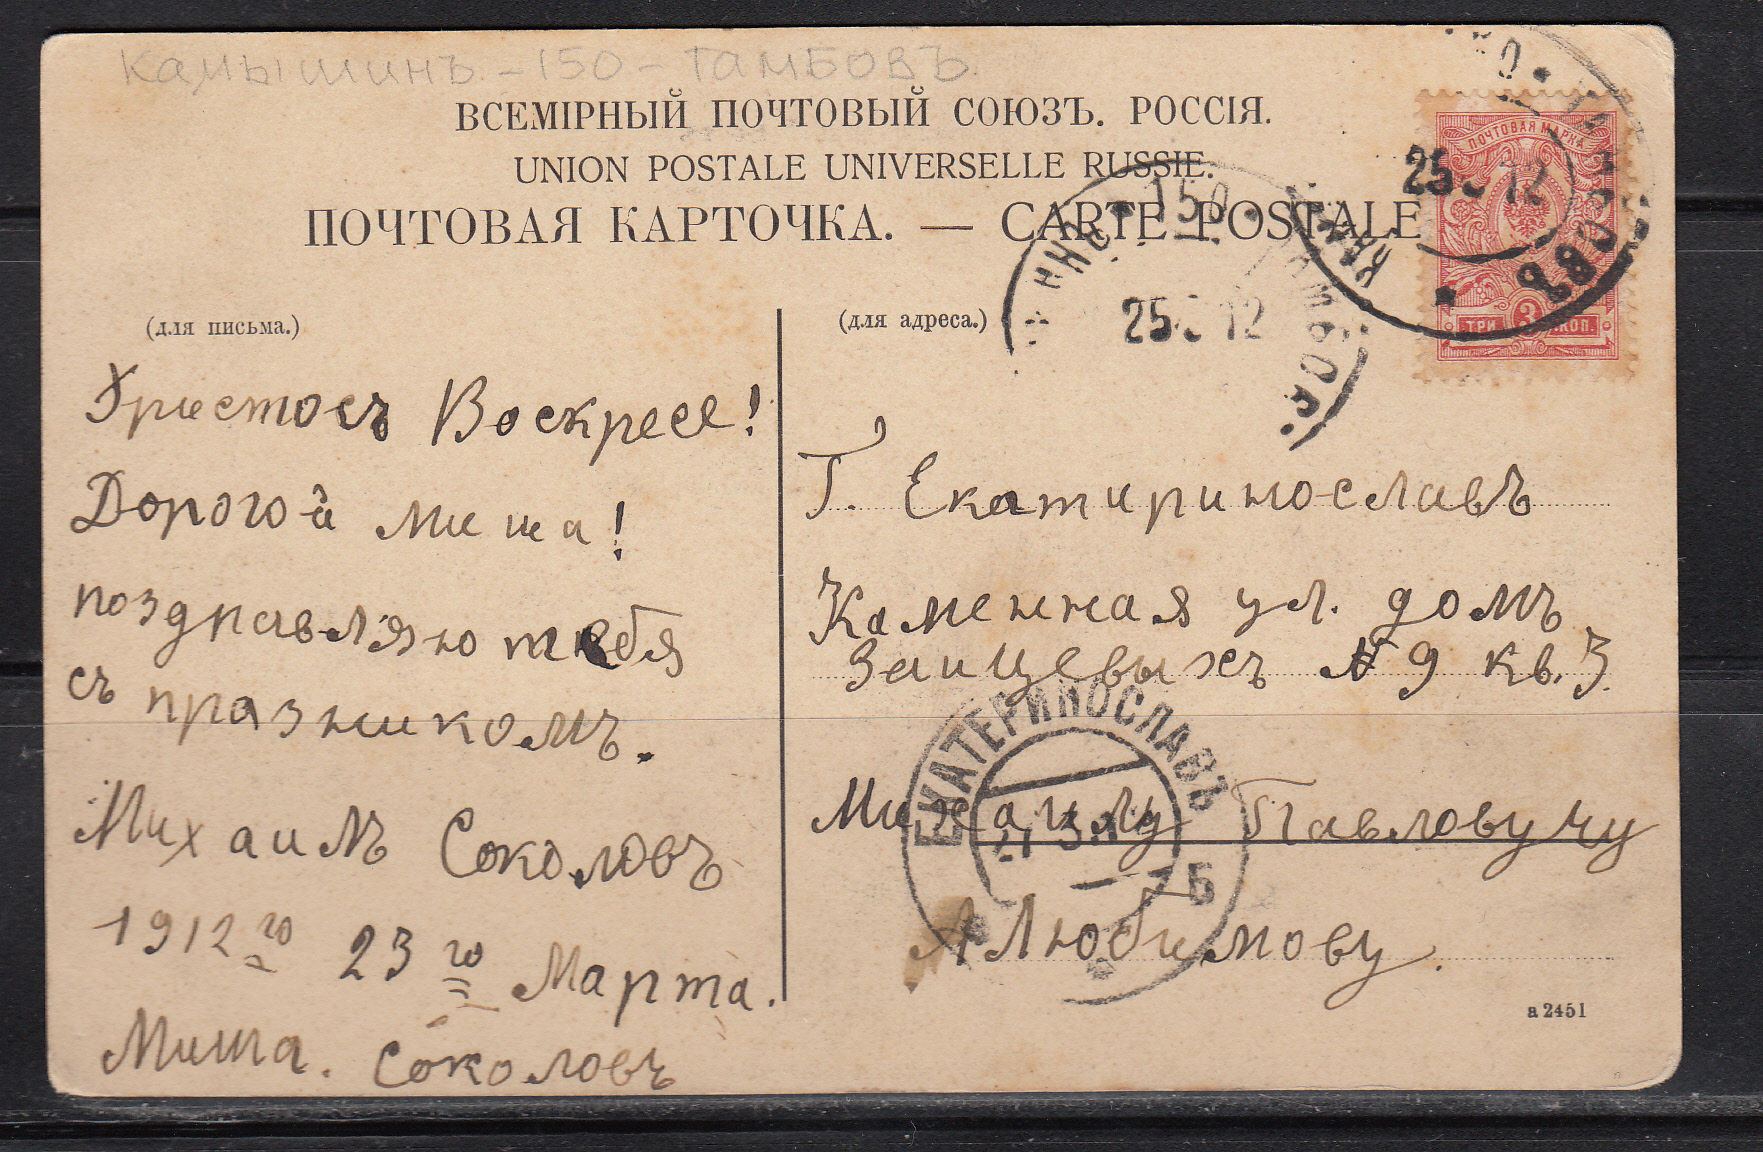 Камышинъ - 150 - Тамбовъ
ВСЕМІРНЫЙ ПОЧТОВЫЙ СОЮЗЪ. РОССІЯ.
UNION POSTALE UNIVERSELLE RUSSIE.
ПОЧТОВАЯ КАРТОЧКА. — CARTE POSTALE
ПОЧТОВАЯ МАРКА
ТРИ 3 КОП.
150
25 12
25 12
(для письма.)
Христосъ Воскресе!
Дорогой Миша!
поздравляю тебя
съ празникомъ.
Михаилъ Соколовъ
1912го 23го Марта.
Миша. Соколовъ
(для адреса.)
Г. Екатиринославъ
Каменная ул. домъ
Заицевыхъ № 9 кв. 3.
Михаилу Павловучу
А Любимову.
ЕКАТЕРИНОСЛАВЪ
Б
а 2451